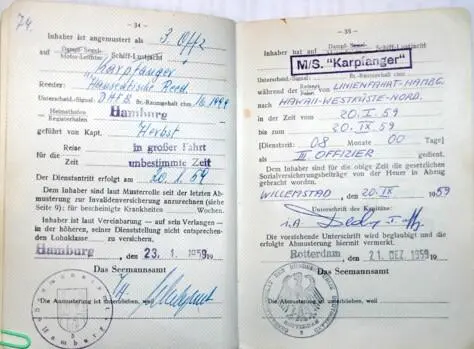 74.
— 34 —
Inhaber ist angemustert als 3. Offz
Dampf- Segel-
auf Motor-Leichter- Schiff-Lustjacht
"Karpfanger"
Reeder: Hanseatische Reed.
Unterscheid.-Signal: Br.-Raumgehalt cbm
Heimathafen Hamburg
Registerhafen
geführt von Kapt. Herbst
Reise in großer Fahrt
für die
Zeit unbestimmte Zeit
Der Dienstantritt erfolgt am 20.1.59
Dem Inhaber sind laut Musterrolle seit der letzten Ab-
musterung zur Invalidenversicherung anzurechnen (siehe
Seite 9): für bescheinigte Krankheiten Wochen.
Inhaber ist laut Vereinbarung — auf sein Verlangen —
in der höheren, seiner Dienststellung nicht entsprechenden
Lohnklasse zu versichern.
Hamburg, den 23. 1. 1959
Das Seemannsamt
Die Anmusterung ist unterblieben, weil
Seemannsamt
Hamburg
— 35 —
Inhaber hat auf
Dampf- Segel-
Schiff-Lustjacht
M/S. "Karpfanger"
Unterscheid.-Signal: Br.-Raumgehalt cbm
während der Reise von LINIENFAHRT-HAMBG.
nach HAWAII-WESTKÜSTE-NORD.
in der Zeit vom 20. I. 59
bis zum 20. IX 59
[Dienstzeit: 08 Monate 00 Tage]
als III. OFFIZIER gedient.
Dem Inhaber sind für die obige Zeit die gesetzlichen
Sozialversicherungsbeiträge von der Heuer in Abzug
gebracht worden.
WILLEMSTAD, den 20. IX 1959
Unterschrift des Kapitäns:
i.A.
Die vorstehende Unterschrift wird beglaubigt und die
erfolgte Abmusterung hiermit vermerkt.
Rotterdam, den 21. DEZ. 1959
Das Seemannsamt
Die Abmusterung ist unterblieben, weil